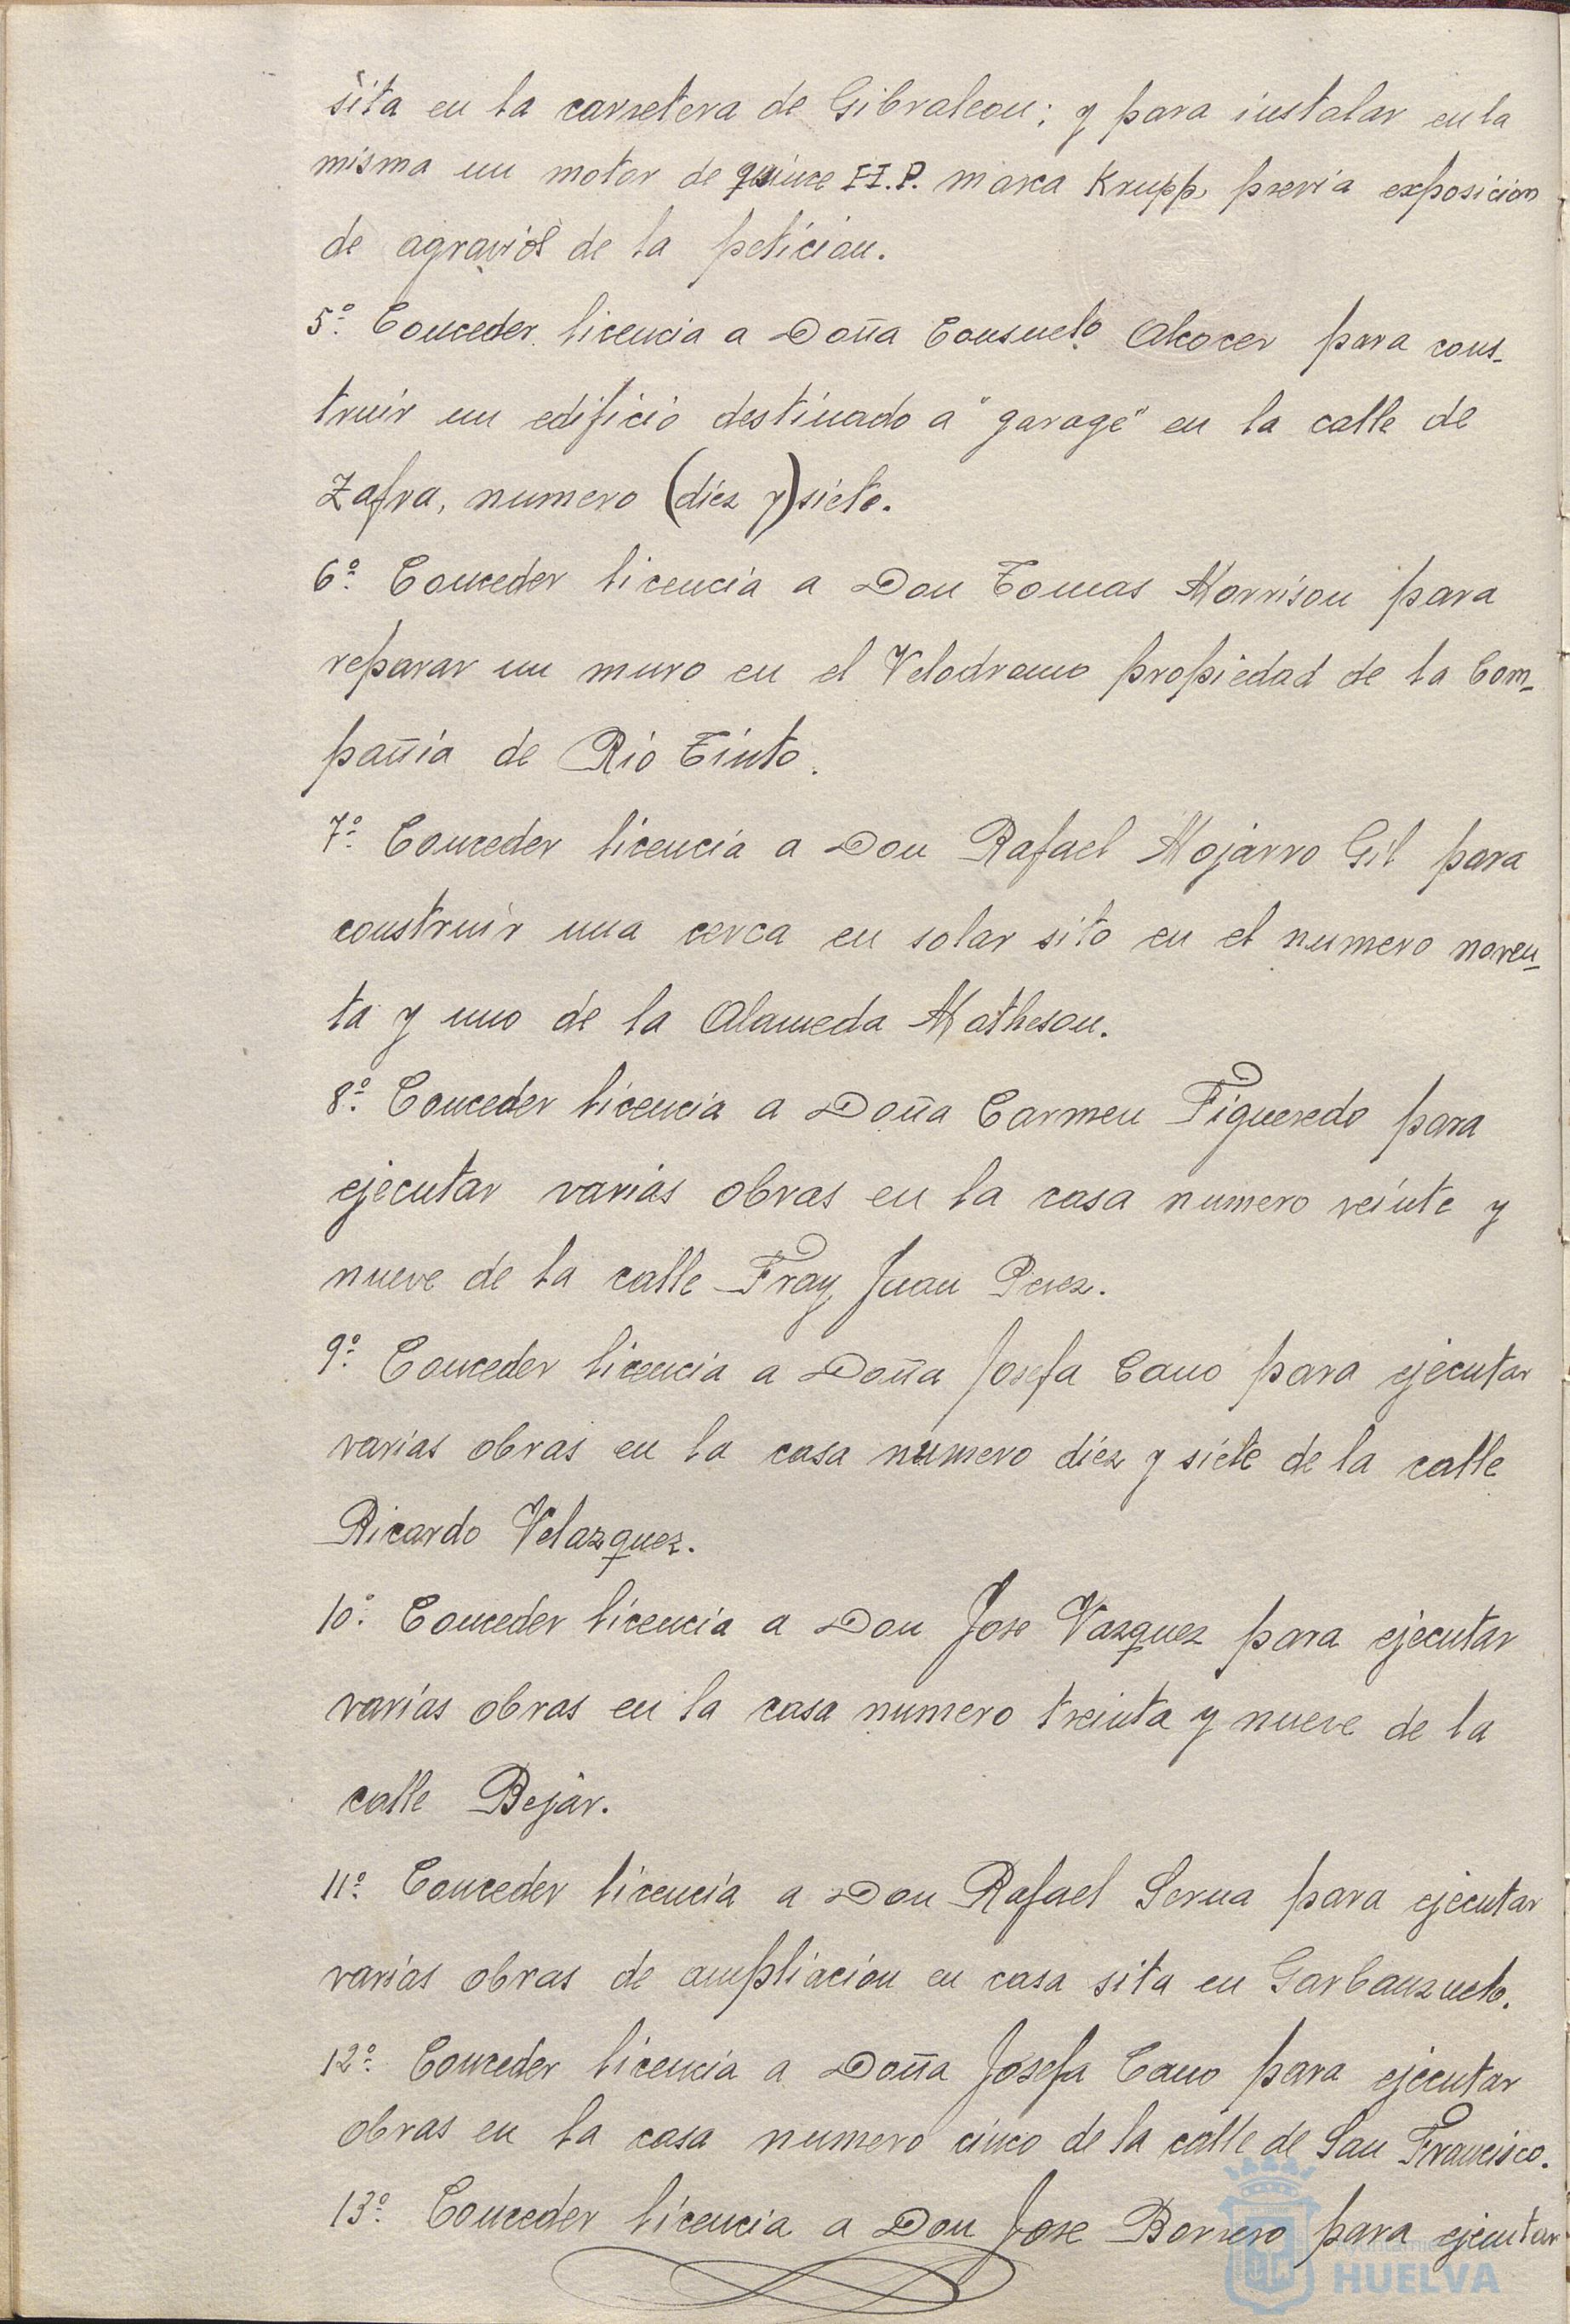 sita en la carretera de Gibraleon; y para instalar en la
misma un motor de quince H.P. marca Krupp, previa exposicion
de agravios de la peticion.
5º. Conceder licencia a Doña Consuelo Alcocer para cons-
truir un edificio destinado a "garage" en la calle de
Zafra, numero (diez y) siete.
6º. Conceder licencia a Don Tomas Morrison para
reparar un muro en el Velodromo propiedad de la Com-
pañia de Rio Tinto.
7º. Conceder licencia a Don Rafael Mojarro Gil para
construir una cerca en solar sito en el numero noven-
ta y uno de la Alameda Matheson.
8º. Conceder licencia a Doña Carmen Figueredo para
ejecutar varias obras en la casa numero veinte y
nueve de la calle Fray Juan Perez.
9º. Conceder licencia a Doña Josefa Cano para ejecutar
varias obras en la casa numero diez y siete de la calle
Ricardo Velazquez.
10º. Conceder licencia a Don Jose Vazquez para ejecutar
varias obras en la casa numero treinta y nueve de la
calle Bejar.
11º. Conceder licencia a Don Rafael Serna para ejecutar
varias obras de ampliacion en casa sita en Garbanzuelo.
12º. Conceder licencia a Doña Josefa Cano para ejecutar
obras en la casa numero cinco de la calle de San Francisco.
13º. Conceder licencia a Don Jose Borrero para ejecutar
HUELVA